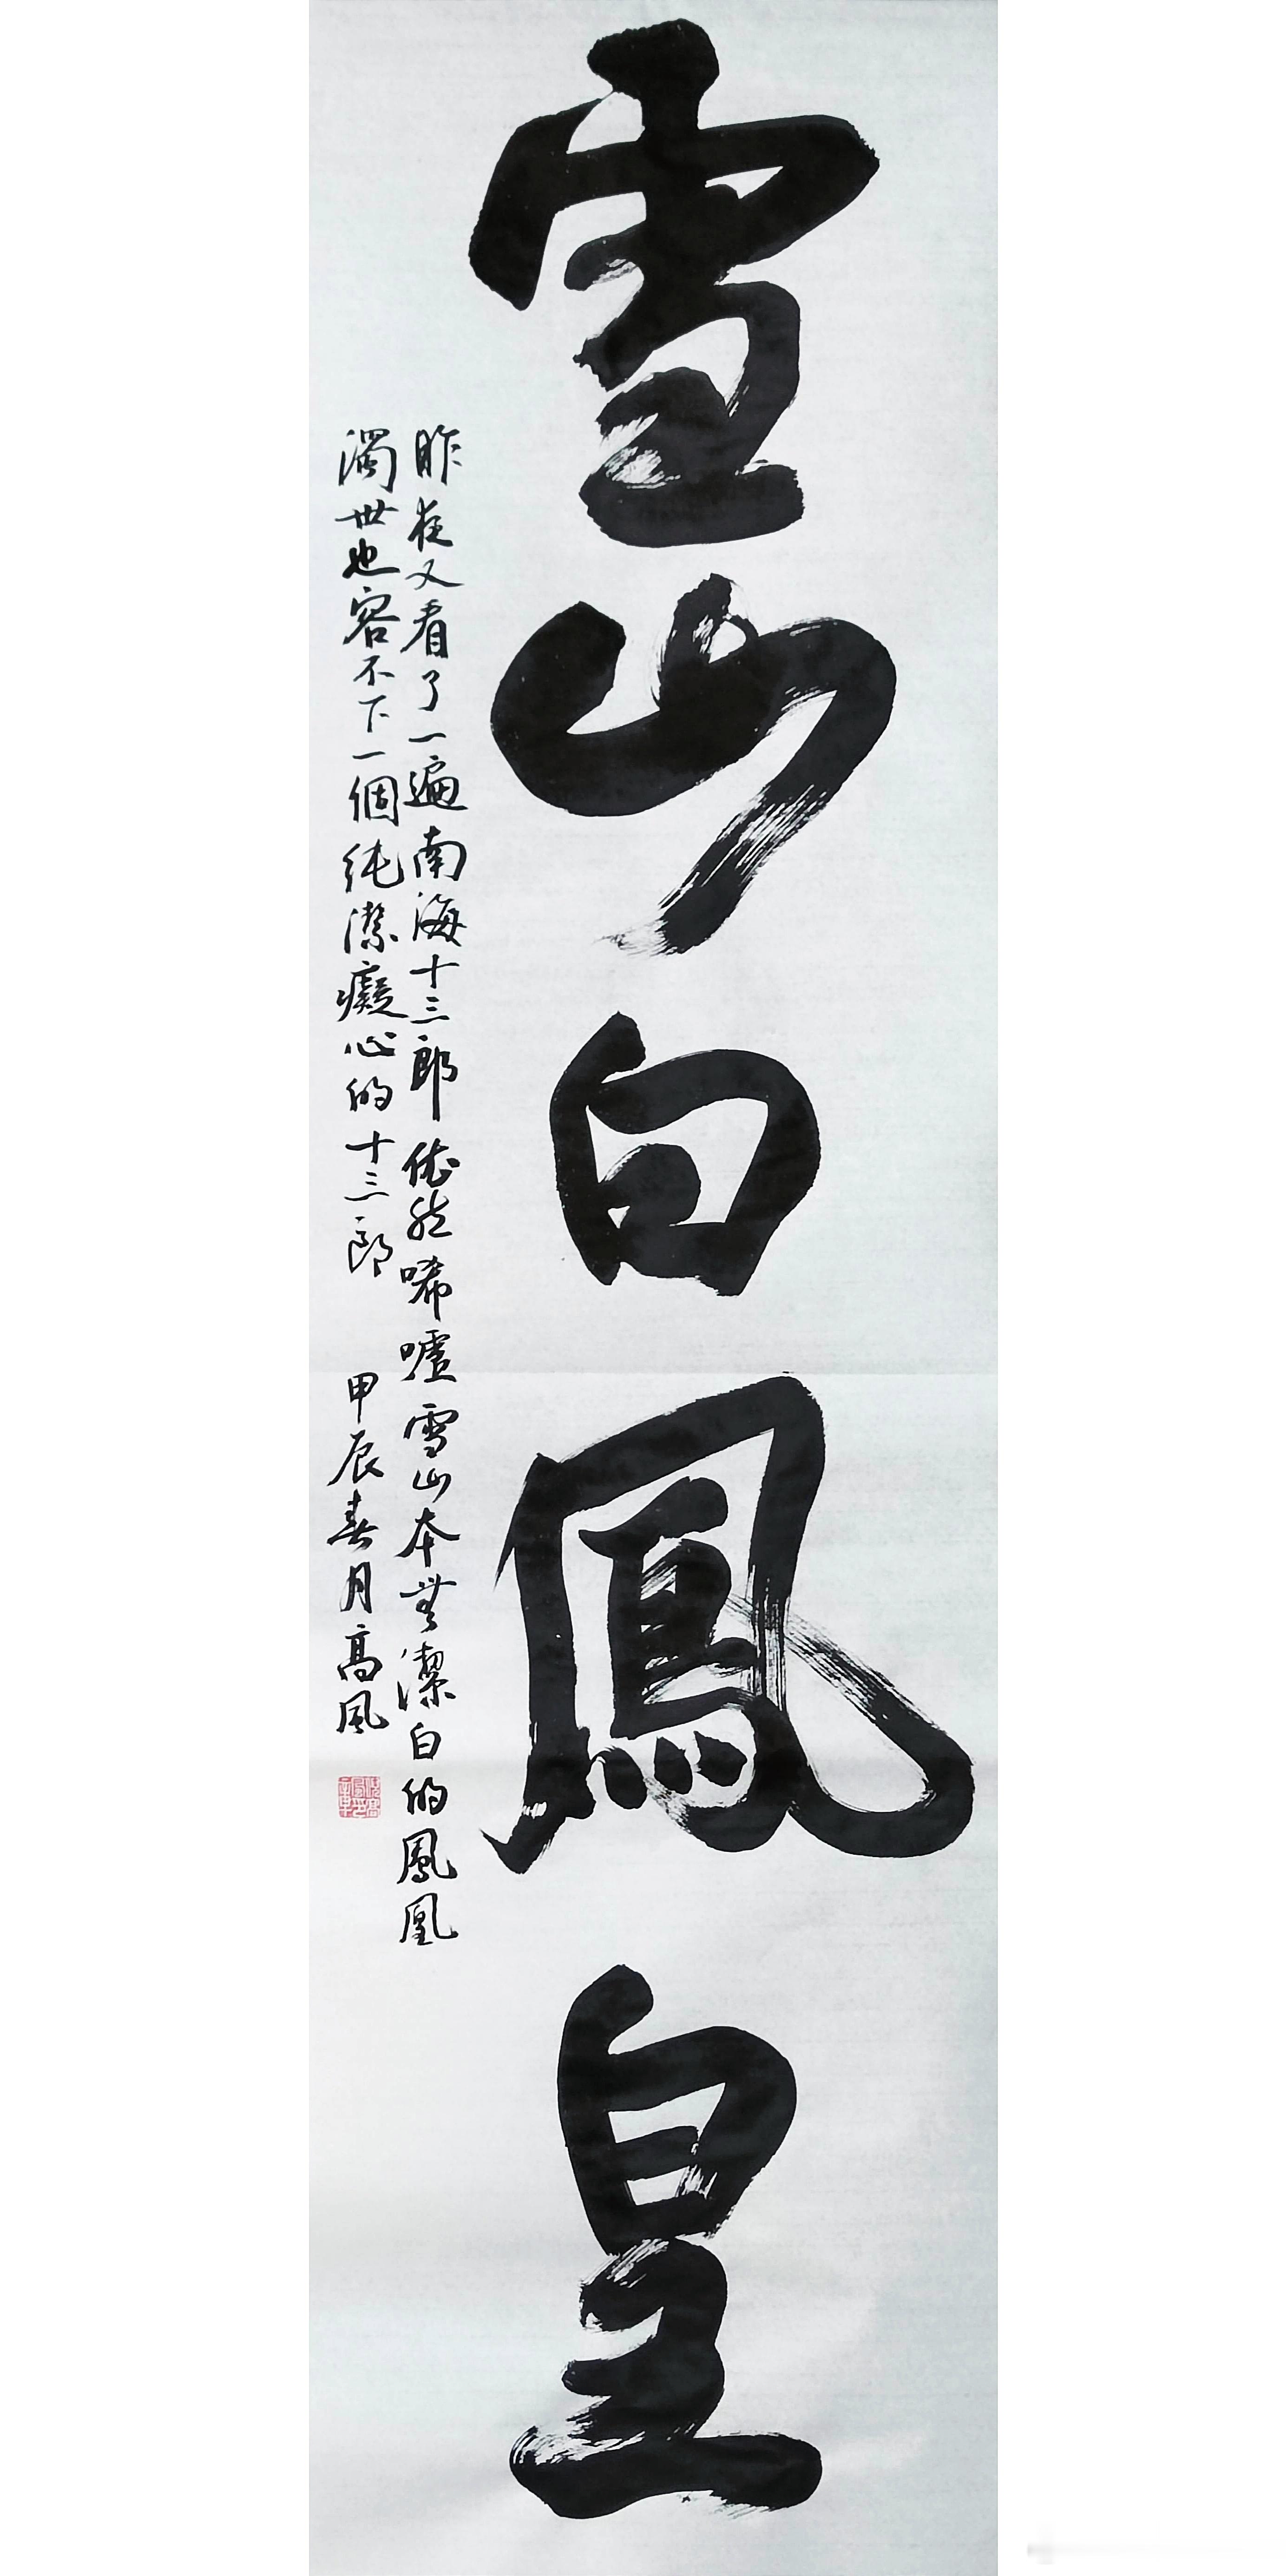 雪山白鳳皇
昨夜又看了一遍南海十三郎依然唏嘘雪山本無潔白的鳳凰
濁世也容不下一個純潔癡心的十三郎
甲辰春月高風